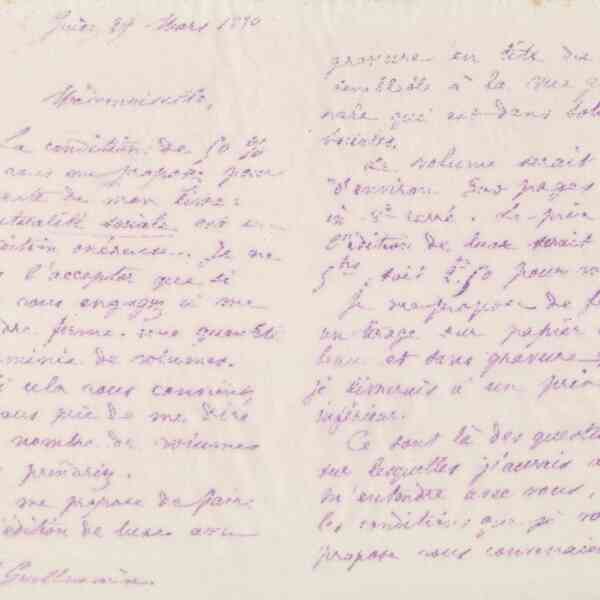 Mars 1890
Mademoiselle,
La condition de 50 %
vous me proposez pour
vente de mon livre:
sociale est une
condition onéreuse. Je ne
l'accepter que si
vous engagez à me
dre ferme une quantité
minée de volumes.
Si cela vous convient
vous prie de me dire
nombre de volumes
prendriez.
me propose de faire
édition de luxe avec
Guillaumin.
gravure en tête du
semblable à la vue
qui est dans
sociales.
Le volume serait
d'environ 300 pages
in 8° carré. Le prix
l'édition de luxe serait
5 frs, soit 2.50 pour
Je me propose de
un tirage sur papier
beau et sans gravure
je livrerais à un prix
inférieur.
Ce sont là des questions
sur lesquelles j'aurais
m'entendre avec vous,
les conditions que je
propose vous convenaient